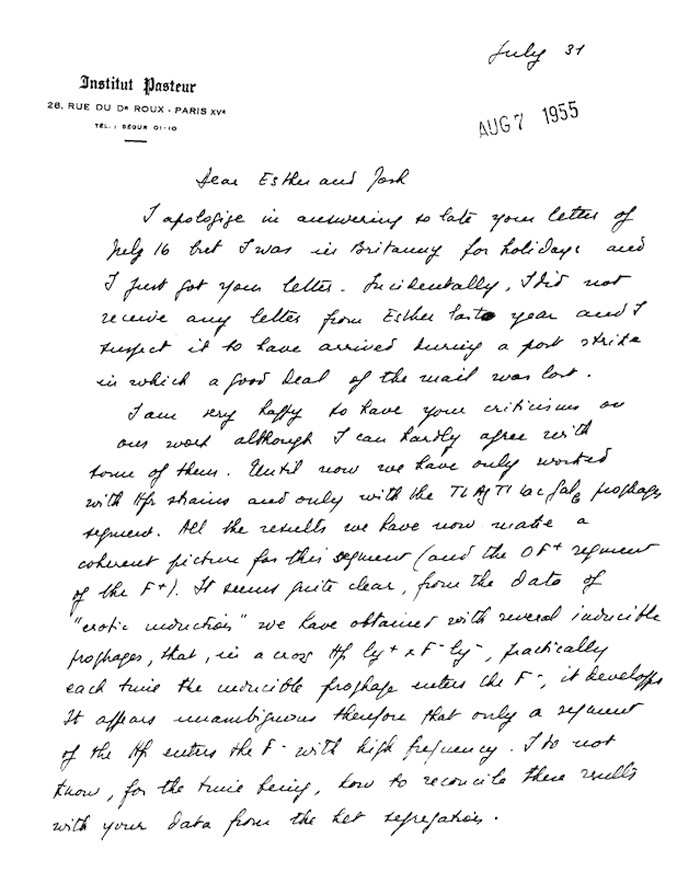 July 31
Institut Pasteur
28, RUE DU Dr ROUX - PARIS XVe
TÉL.: SÉGUR 01-10
AUG 7 1955
Dear Esther and Josh
I apologize in answering so late your letter of
July 16 but I was in Britanny for holidays and
I just got your letter. Incidentally, I did not
receive any letter from Esther last year and I
suspect it to have arrived during a post strike
in which a good deal of the mail was lost.
I am very happy to have your criticisms on
our work although I can hardly agree with
some of them. Until now we have only worked
with Hfr strains and only with the TL Az T1 lac Gal prophages
segment. All the results we have now make a
coherent picture for this segment (and the OF+ segment
of the F+). It seems quite clear, from the data of
"erotic induction" we have obtained with several inducible
prophages, that, in a cross Hfr ly+ x F- ly-, practically
each time the inducible prophage enters the F-, it develops
It appears unambiguous therefore that only a segment
of the Hfr enters the F- with high frequency. I do not
know, for the time being, how to reconcile these results
with your data from the het segregation.